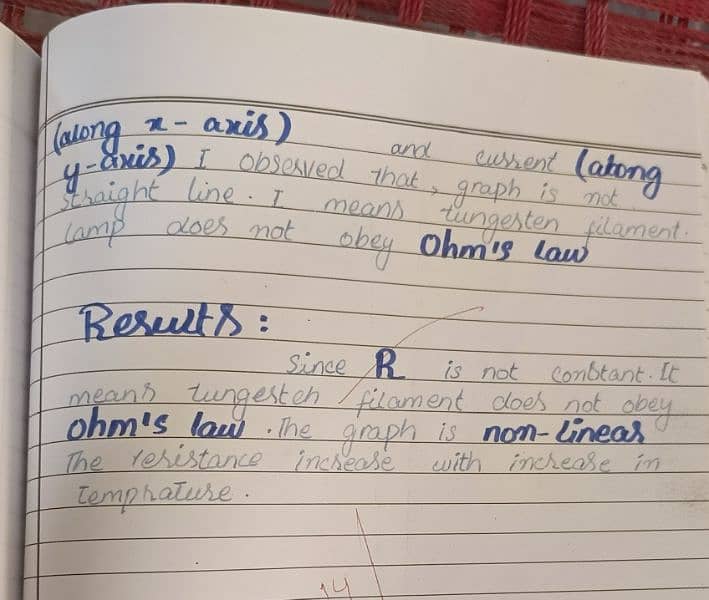 (along x-axis) and current (along
y-axis) I observed that, graph is not
straight line. I means tungesten filament.
lamp does not obey Ohm's law
Results:
Since R is not constant. It
means tungesten filament does not obey
ohm's law. The graph is non-linear
The resistance increase with increase in
temprature.
14